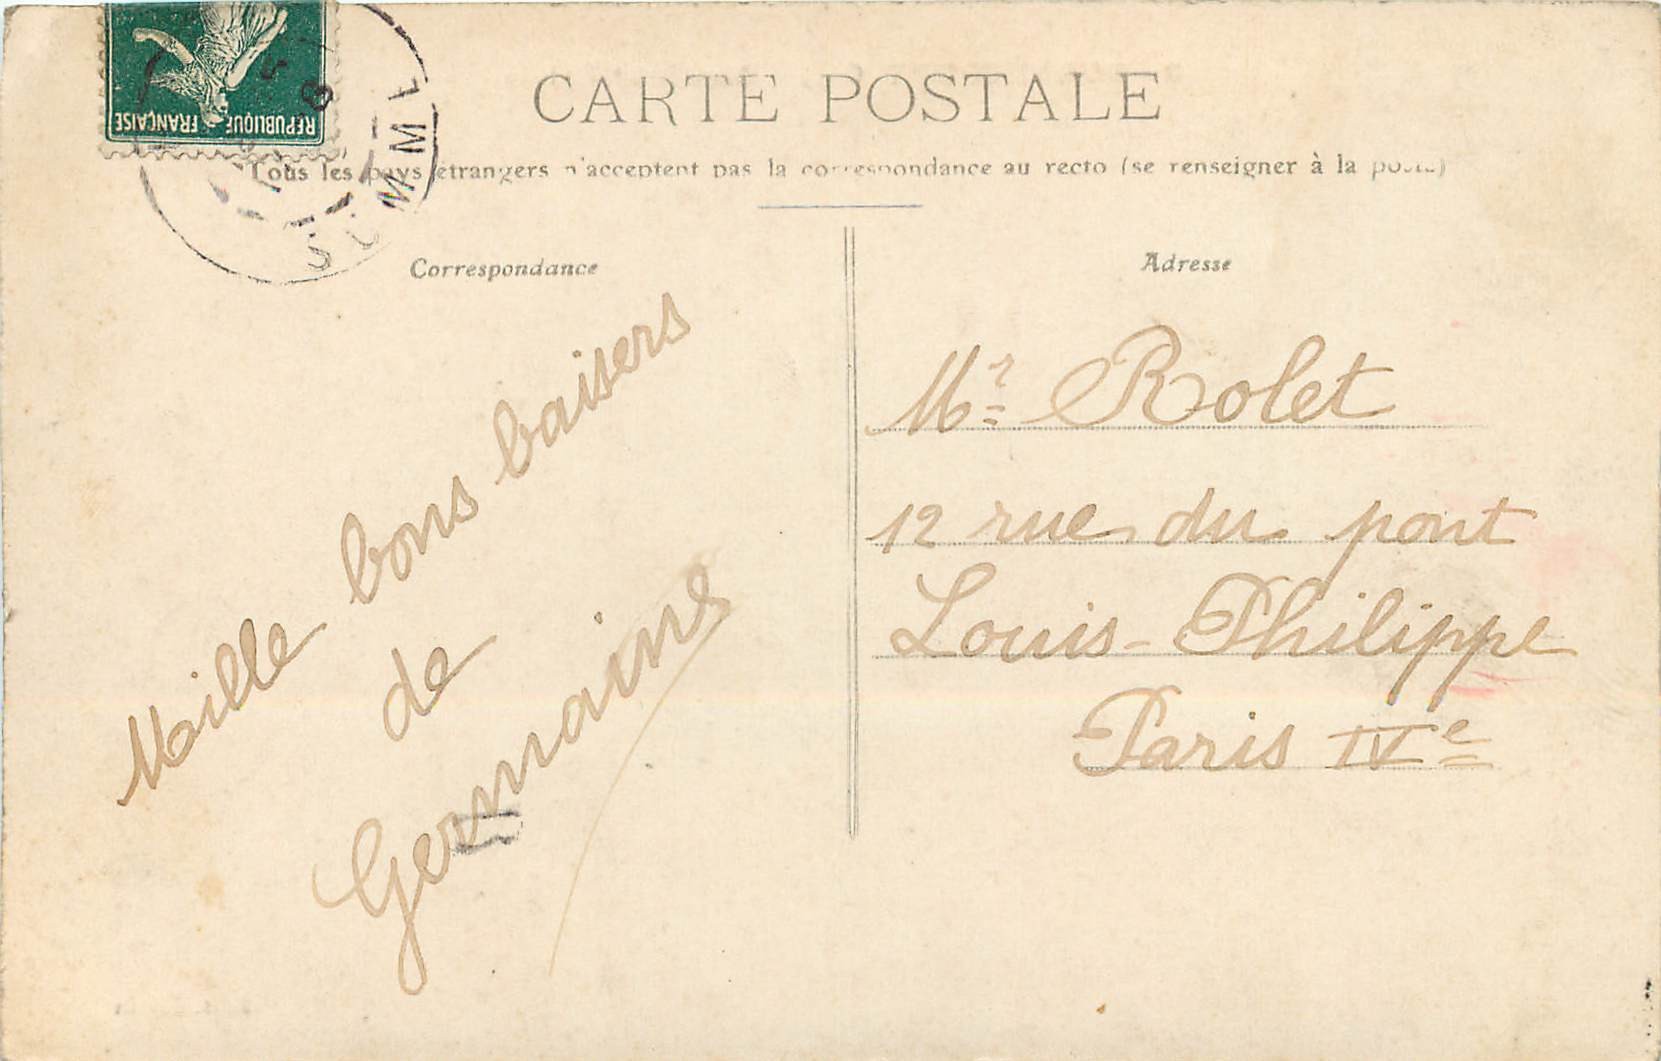 REPUBLIQUE FRANÇAISE
CARTE POSTALE
Tous les pays étrangers n'acceptent pas la correspondance au recto (se renseigner à la poste)
Correspondance
Mille bons baisers
de
Germaine
Adresse
Mr Rolet
12 rue du pont
Louis-Philippe
Paris IVe